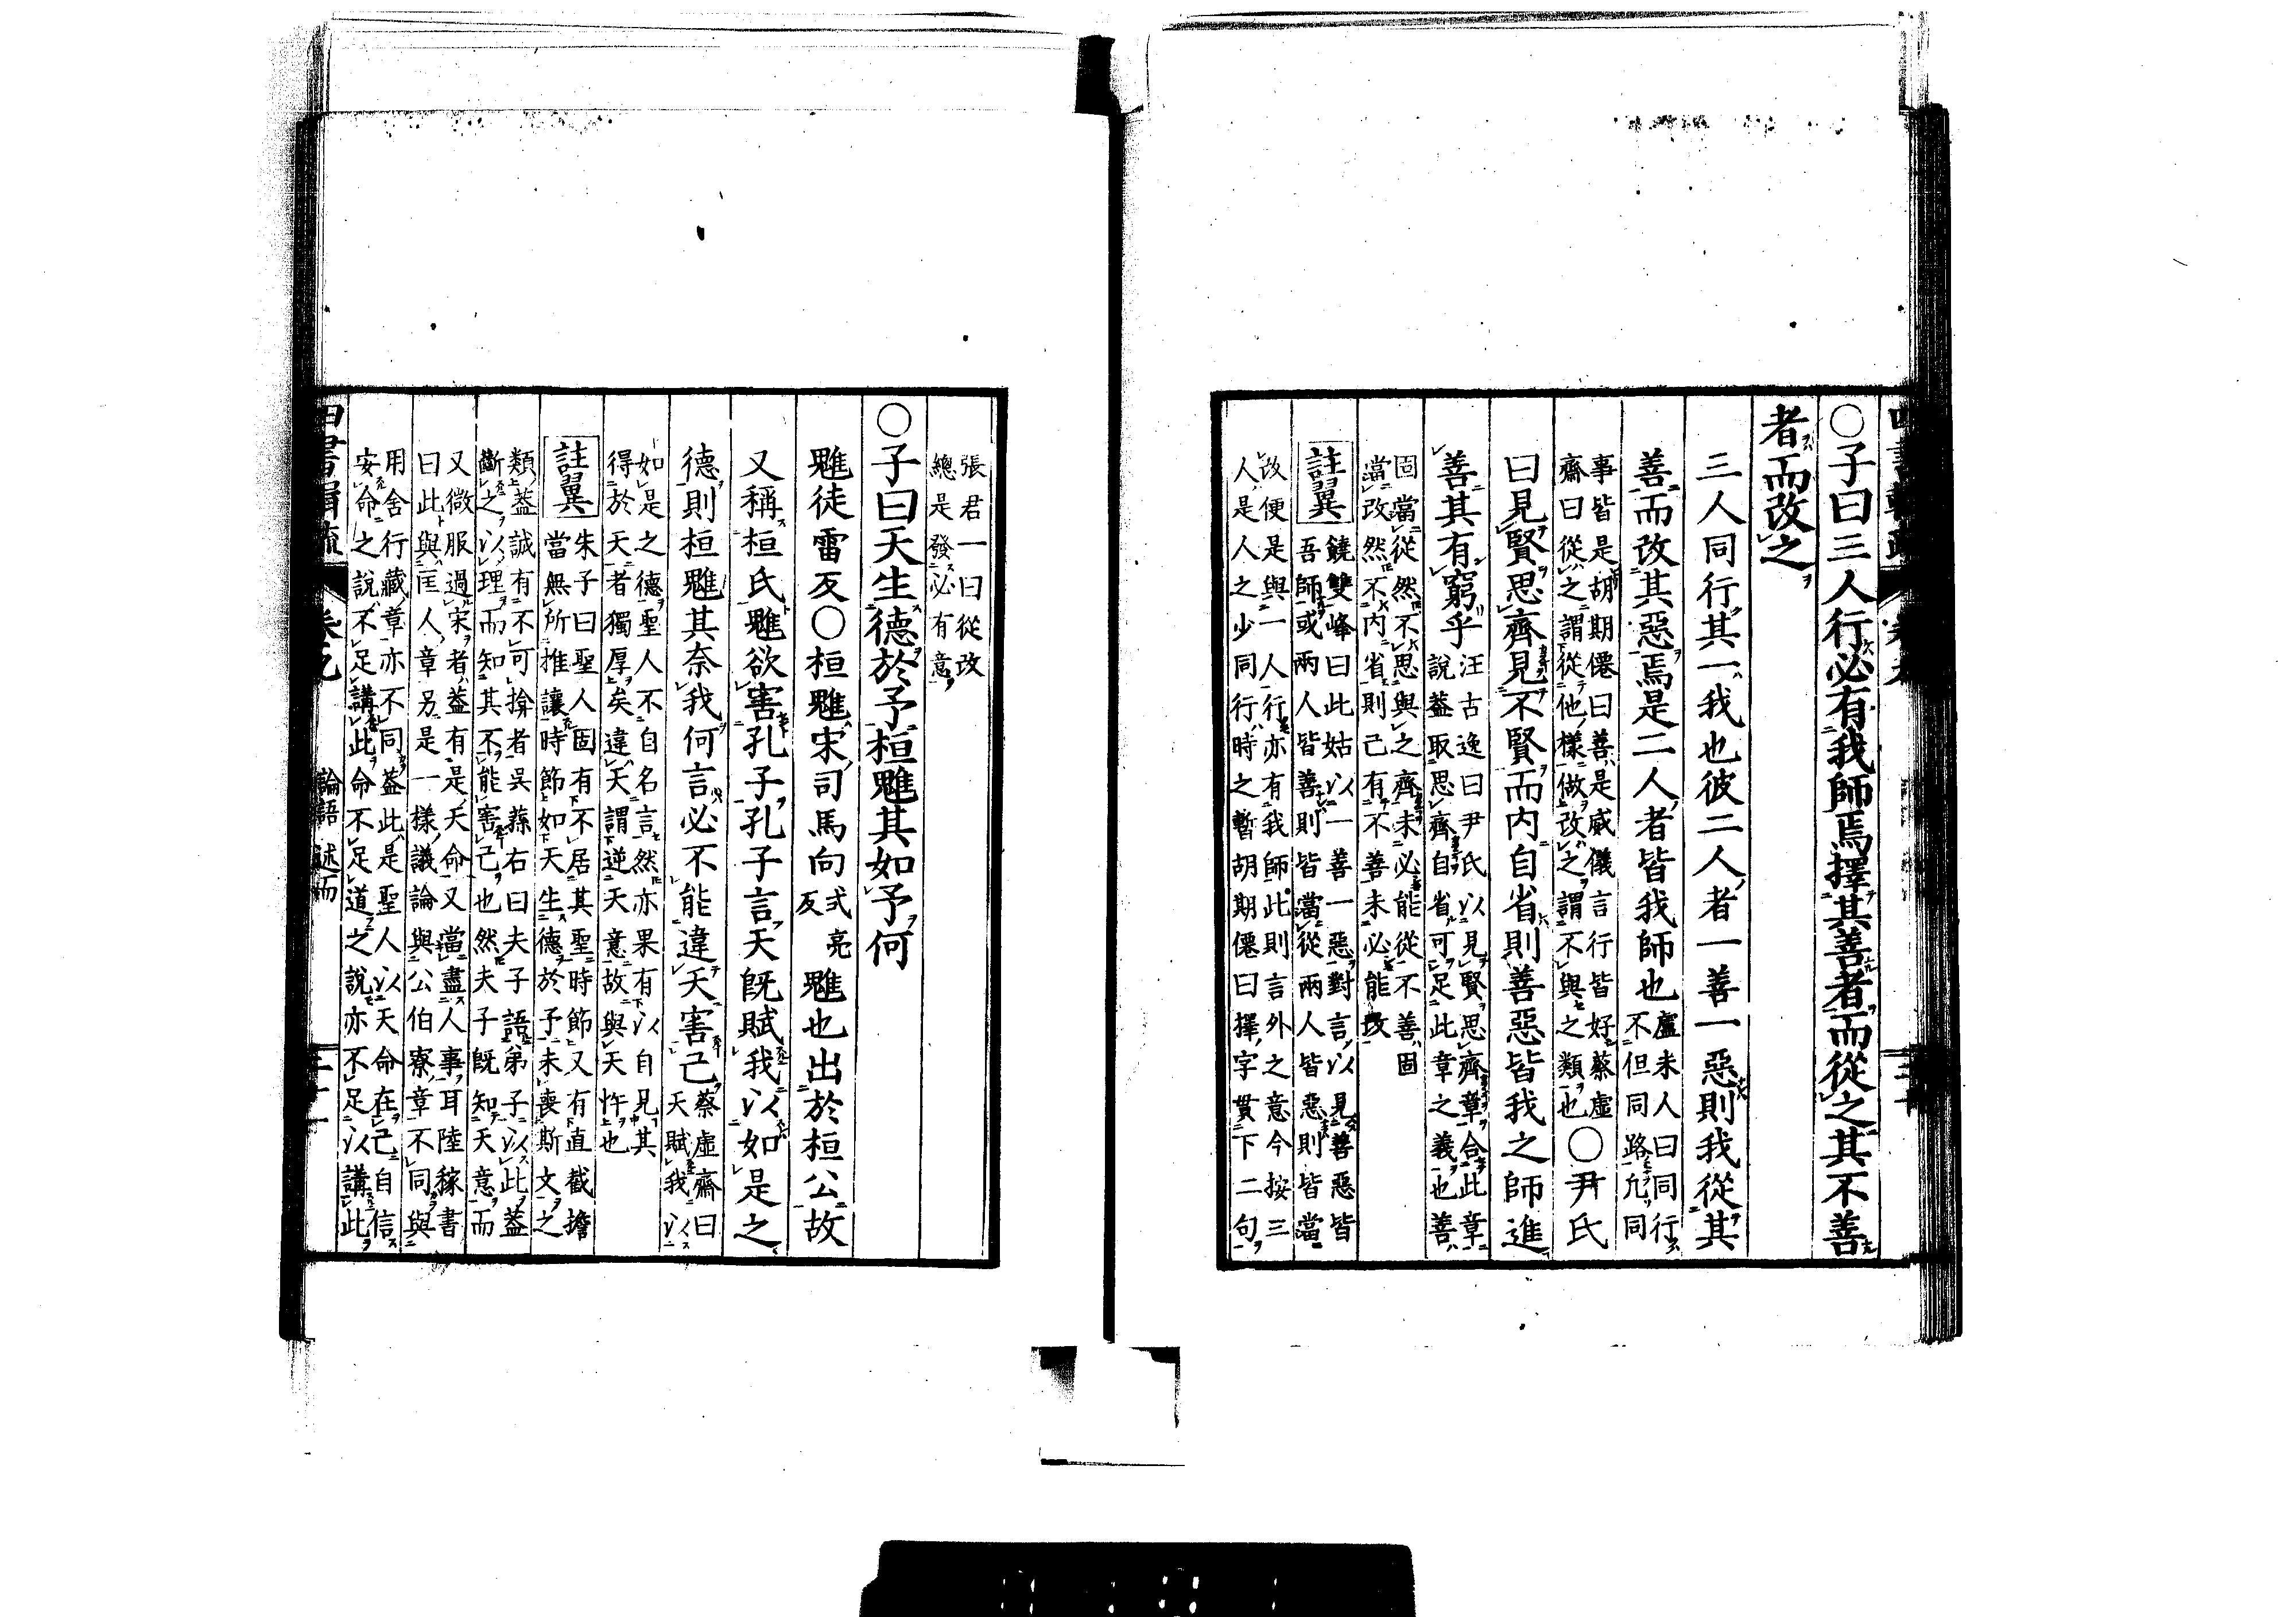 〇子曰三人行必有我師焉擇其善者而從之其不善
者而改之
三人同行其一我也彼二人者一善一惡則我從其
善而改其惡焉是二人者皆我師也
盧未人曰同行
不但同路凢同
事皆是胡期僊曰善是威儀言行皆好蔡虛
齋曰從之謂從他樣做改之謂不與之類也
〇尹氏
曰見賢思齊見不賢而內自省則善惡皆我之師進
善其有窮乎
汪古逸曰尹氏以見賢思齊章合此章
說蓋取思齊自省可足此章之義也善
固當從然不思與之齊未必能從不善固
當改然不內省則己有不善未必能改
註翼
饒雙峰曰此姑以一善一惡對言以見善惡皆
吾師或兩人皆善則皆當從兩人皆惡則皆當
改便是與一人行亦有我師此則言外之意今按三
人是人之少同行時之暫胡期僊曰擇字貫下二句
張君一曰從改
總是發必有意
〇子曰天生德於予桓魋其如予何
魋徒雷反〇桓魋宋司馬向
式亮
反
魋也出於桓公故
又稱桓氏魋欲害孔子孔子言天既賦我以如是之
德則桓魋其奈我何言必不能違天害己
蔡虛齋曰
天賦我以
如是之德聖人不自名言然亦果有以自見其
得於天者獨厚矣違天謂逆天意故與天忤也
註翼
朱子曰聖人固有不居其聖時節又有直截擔
當無所推讓時節如天生德於予未喪斯文之
類蓋誠有不可揜者吳蓀右曰夫子語弟子以此蓋
斷之以理而知其不能害己也然夫子既知天意而
又微服過宋者蓋有是天命又當盡人事耳陸稼書
曰此與匡人章另是一樣議論與公伯寮章不同與
用舍行藏章亦不同蓋此是聖人以天命在己自信
安命之說不足講此命不足道之說亦不足以講此
論語 述而